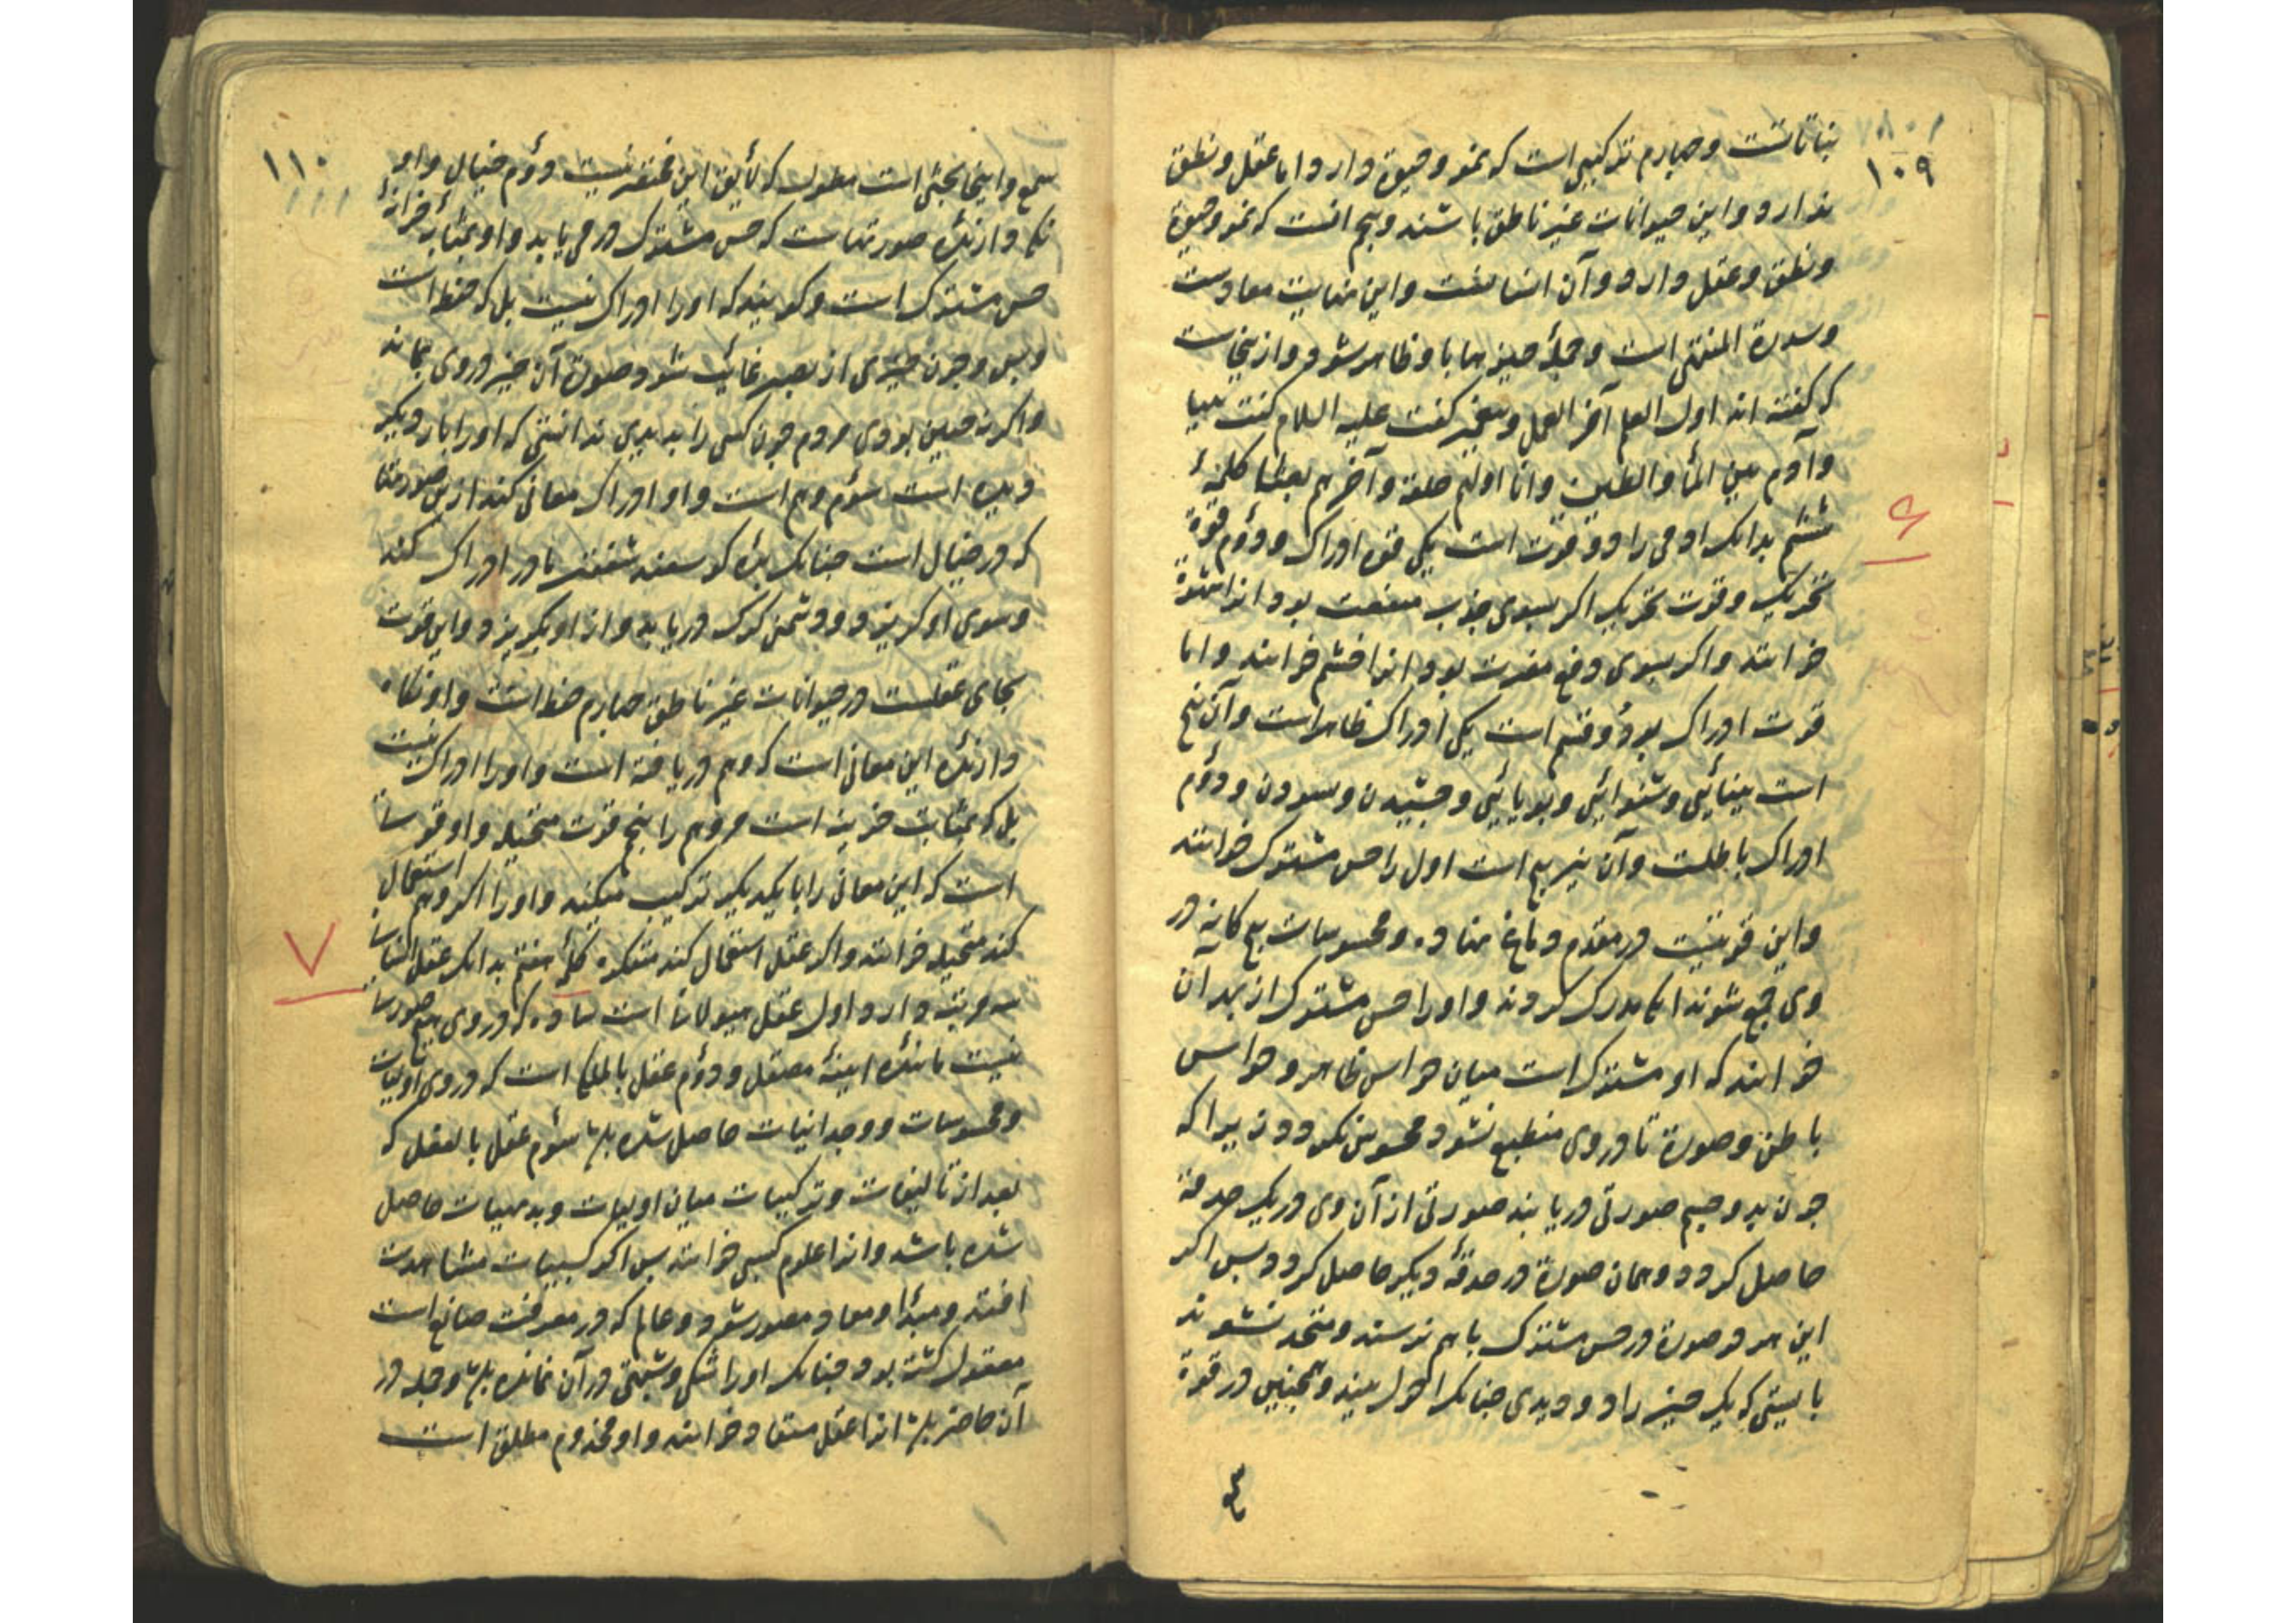 ۱۰۹
نباتاتست و چهارم ترکیبی است که نمو و حیوة دارد اما عقل و نطق
ندارد و این حیوانات غیر ناطق باشند و پنجم انست که نمو و حیوة
و نطق و عقل دارد و آن انسانست و این نهایت معادست
و سدرة المنتهی است و جملهٔ چیزها باو ظاهر شود و ازینجاست
که گفته اند اول العلم آخر العمل و پیغمبر گفت علیه السلام کنت نبیا
و آدم بین الماء والطین و انا اولهم خلقة و آخرهم بعثا کلمهٔ
ششم بدانک ادمی را دو قوت است یکی قوه ادراک و دؤم قوة
تحریک و قوت تحریک اگر بسوی جذب منفعت بود انرا شهوة
خوانند و اگر بسوی دفع مضرت بود انرا خشم خوانند و اما
قوت ادراک بدو قسم است یکی ادراک ظاهراست و آن پنج
است بینائی و شنوائی و بویایی و چشیدن و بسودن و دؤم
ادراک باطلت و آن نیز پنج است اول را حس مشترک خوانند
و این قوتیست در مقدم دماغ نهاده و محسوسات پنج کانه در
وی جمع شوند انکا مدرک کردند و او را حس مشترک از بهر آن
خوانند که او مشترک است میان حواس ظاهر و حواس
باطن و صورة تا در وی منطبع نشود محسوس نکردد زیرا که
چون بدو چشم صورتی دریابند صورتی از آن وی در یک حدقة
حاصل کردد و همان صورة در حدقهٔ دیکر حاصل کردد پس اکر
این هر دو صورة در حس مشترک باهم نرسند و متحد نشوند
بایستی که یک چیز را دو دیدی چنانک احول بیند و همچنین در قوة
۱۱۰
سمع و اینجا بحثی است مطول که لایق این مختصر نیست دؤم خیال و او
نکاه دارندهٔ صورتهاست که حس مشترک درمی یابد و او بمثابهٔ خزانهٔ
حس مشترک است و کویند که او را ادراک نیست بل که حفظ است
و بس و چون چیزی از بصر غائب شود صورة آن چیز در وی بماند
و اکر نه چنین بودی مردم چون کسی را بدیدی ندانستی که او را بار دیکر
دیده است سؤم وهم است و او ادراک معانی کند از این صورتها
که در خیال است چنانک برهٔ کوسفند شفقت مادر ادراک کند
و سوی او کریزد و دشمنی کرک دریابد و از او بکریزد و این قوت
بجای عقلست در حیوانات غیر ناطق چهارم حفظ است و او نکاه
دارندهٔ این معانی است که وهم دریافته است و او را ادراک نیست
بل که بمثابت خزینه است مر وهم را پنجم قوت متخیله و او قوتی
است که این معانی را با یکدیکر ترکیب میکند و او را اکر وهم استعمال
کند متخیله خوانند و اکر عقل استعمال کند متفکره کلمهٔ هفتم بدانک عقل انسانی
۷
سه مرتبه دارد اول عقل هیولانی است ساده که در وی هیچ صورت
نیست مانندهٔ اینهٔ مصقل و دؤم عقل بالملکه است که در وی اولیات
و محسوسات و وجدانیات حاصل شده باشد سؤم عقل بالفعل که
بعد از تالیفات و ترکیبات میان اولیات و بدیهیات حاصل
شده باشد و انرا علوم کسبی خوانند پس اکر کسبیات مشاهدت
افتد و مبدأ و معاد مصور شود و عالم که در معرفت صانع است
معقول کشته بود چنانک او را شکی و شبهتی در آن نمانده باشد و جمله در
آن حاضر باشد انرا عقل مستفاد خوانند و او مخدوم مطلق است